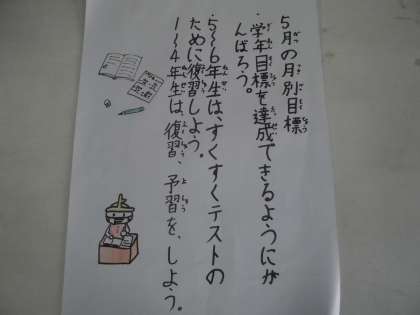 5月の月別目標
・学年目標を達成できるようにが
んばろう。
・5〜6年生は、すくすくテストの
ために復習しよう。
1〜4年生は、復習、予習を、しよう。